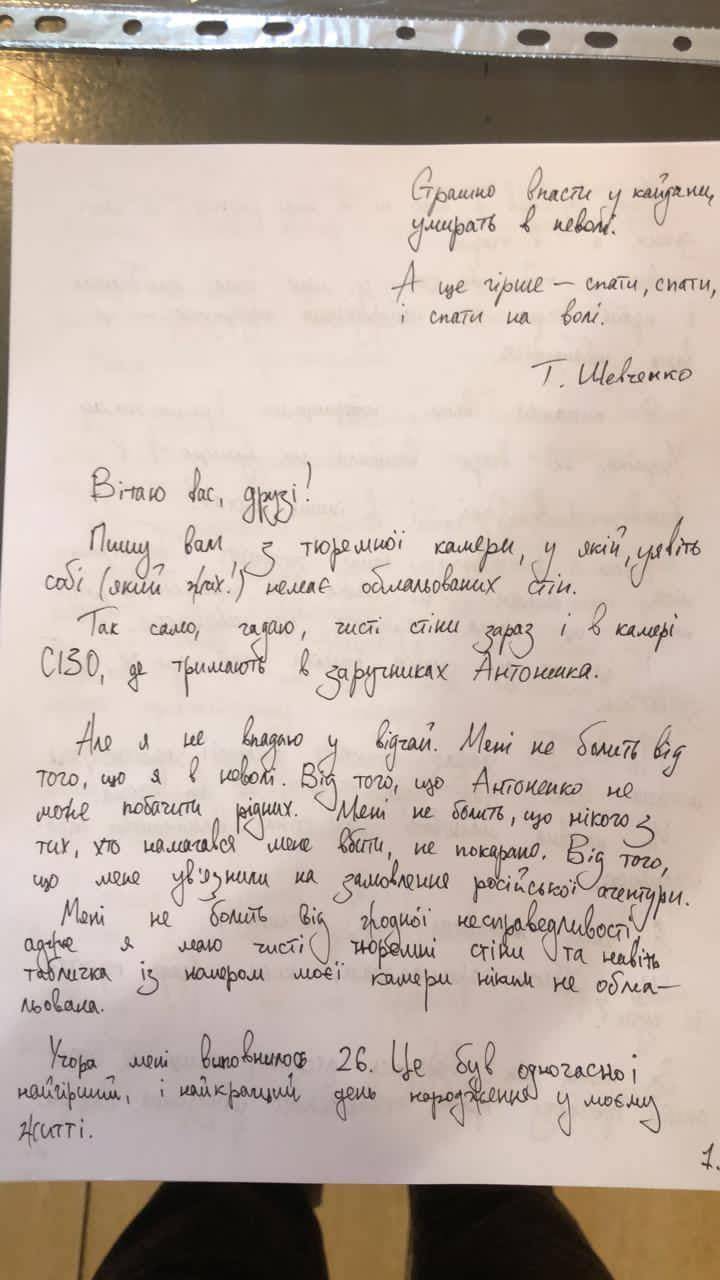 Страшно впасти у кайдани,
умирать в неволі.
А ще гірше – спати, спати,
і спати на волі.
Т. Шевченко
Вітаю вас, друзі!
Пишу вам, з тюремної камери, у якій, уявіть
собі (який жах!) немає обмальованих стін.
Так само, гадаю, чисті стіни зараз і в камері
СІЗО, де тримають в заручниках Антоненка.
Але я не впадаю у відчай. Мені не болить від
того, що я в неволі. Від того, що Антоненко не
може побачити рідних. Мені не болить, що нікого з
тих, хто намагався мене вбити, не покарано. Від того,
що мене ув'язнили на замовлення російської агентури.
Мені не болить від жодної несправедливості
адже я маю чисті тюремні стіни та навіть
табличка із номером моєї камери ніким не обма-
льована.
Учора мені виповнилося 26. Це був одночасно і
найгірший, і найкращий день народження у моєму
житті.
1.